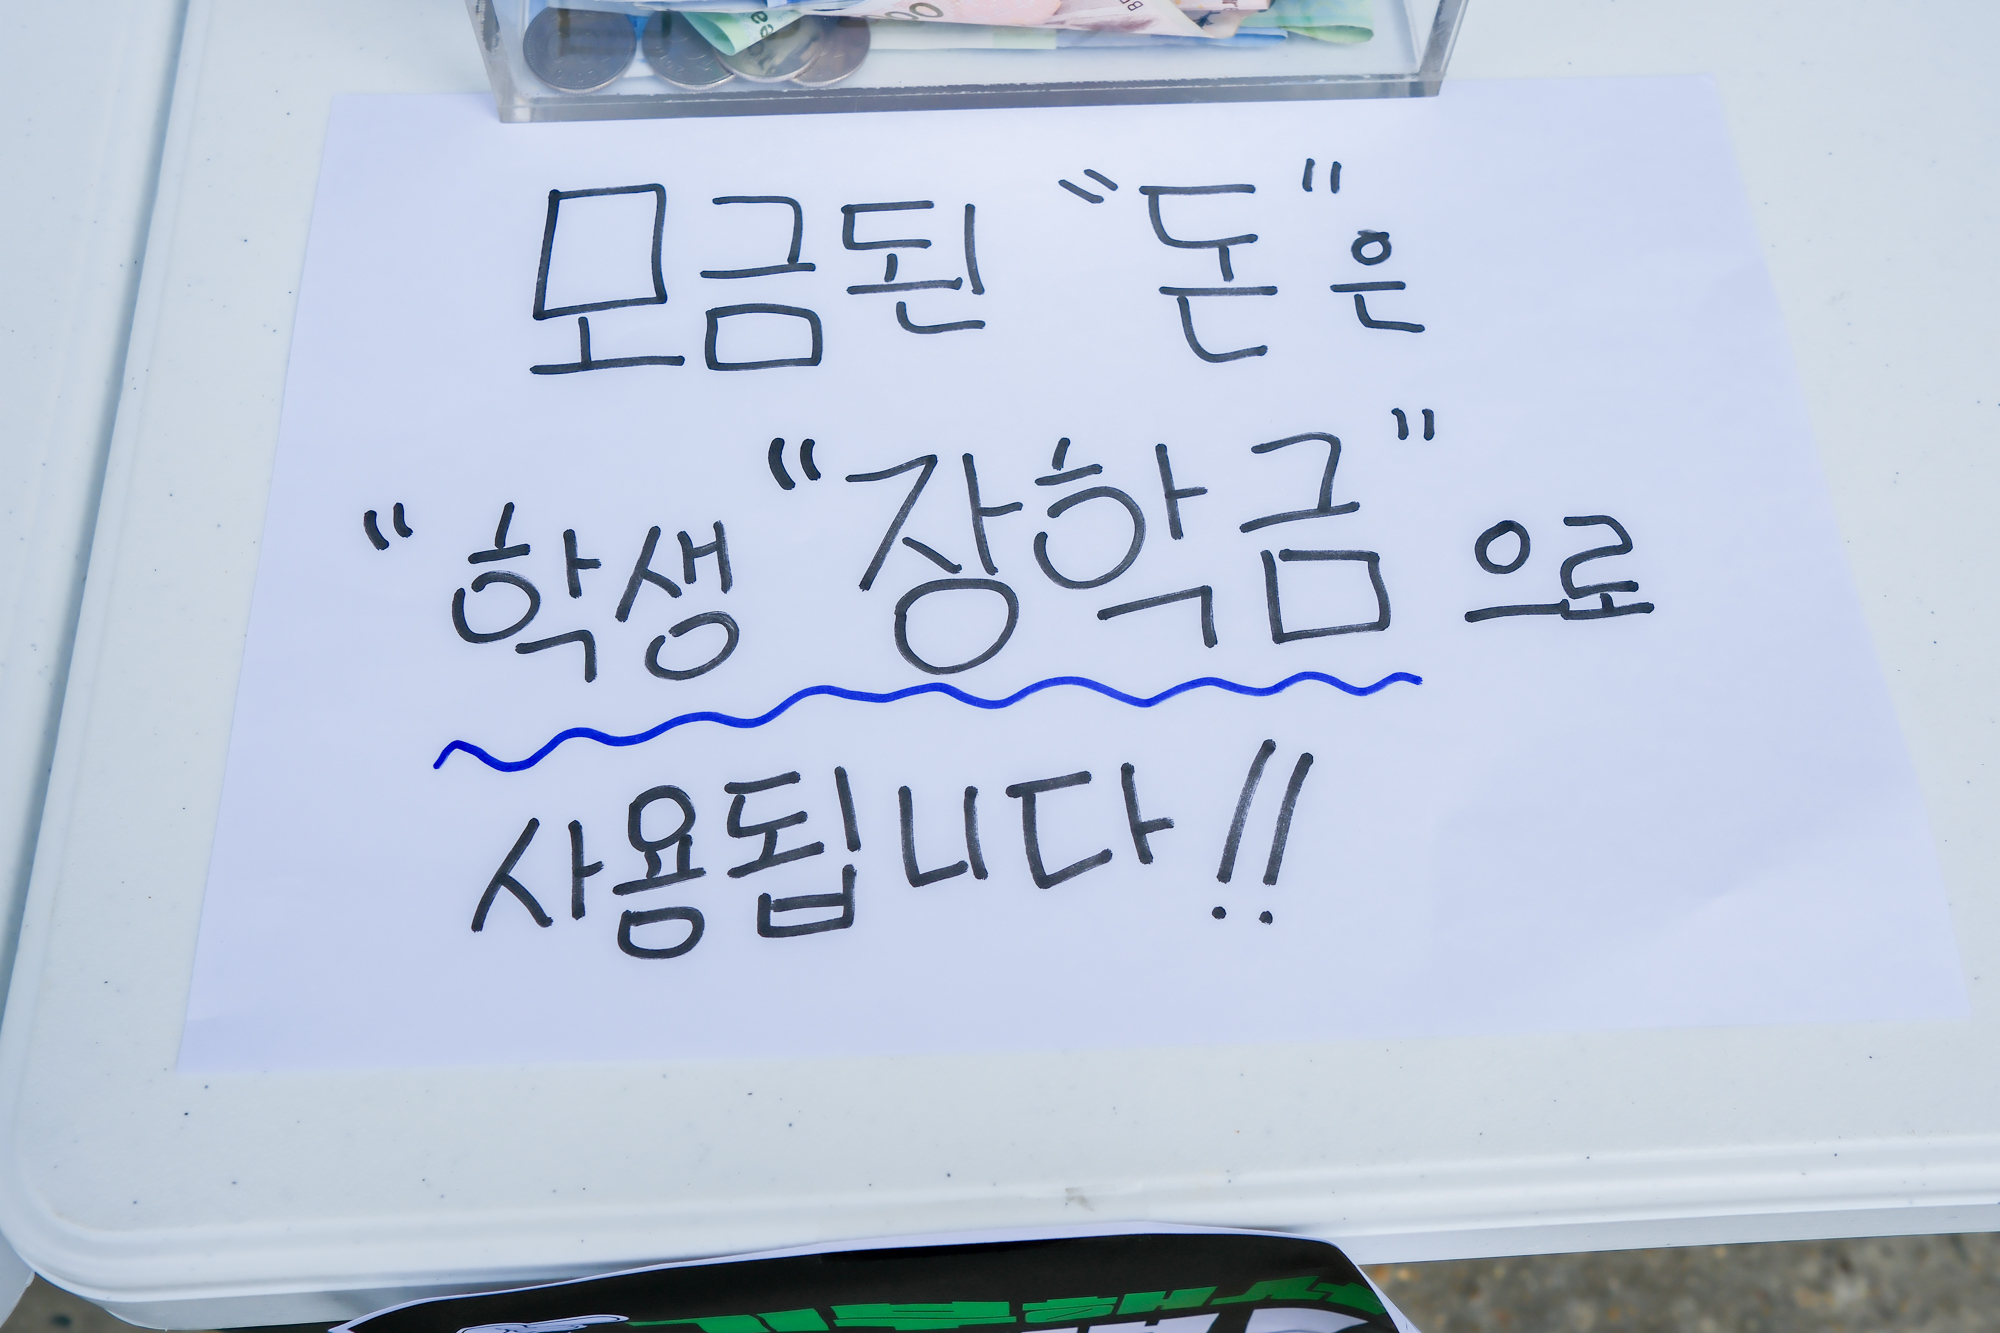 모금된 "돈"은
"학생 "장학금" 으로
사용됩니다!!